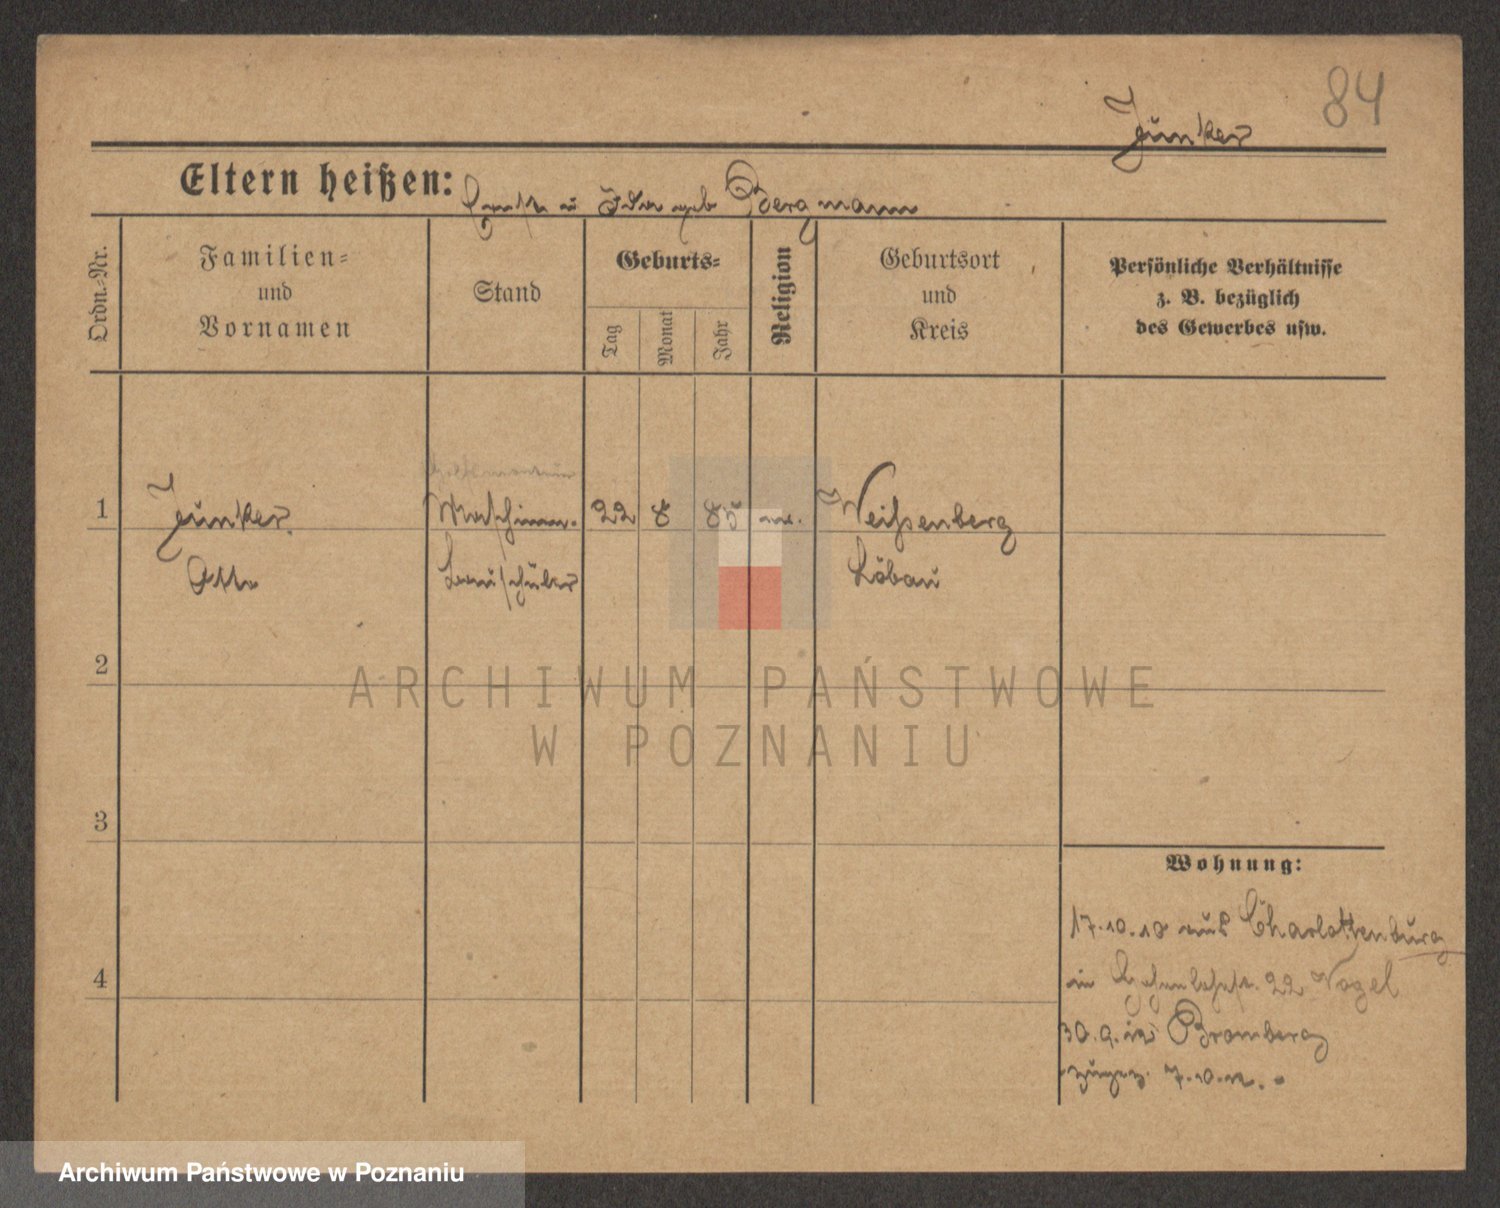 84
Junker
Eltern heißen: u Ida geb Bergmann
Ordn.-Nr.
Familien-
und
Vornamen
Stand
Geburts-
Tag
Monat
Jahr
Religion
Geburtsort
und
Kreis
Persönliche Verhältnisse
z. B. bezüglich
des Gewerbes usw.
1
Junker
Otto
Maschinen-
Bauschüler
22 8 85 ev.
Weißenberg
Löbau
2
3
4
Wohnung:
17.10.10 aus Charlottenburg
in 22 Vogel
30.9. Bromberg
zugez. 7.10.12.
ARCHIWUM PAŃSTWOWE
W POZNANIU
Archiwum Państwowe w Poznaniu